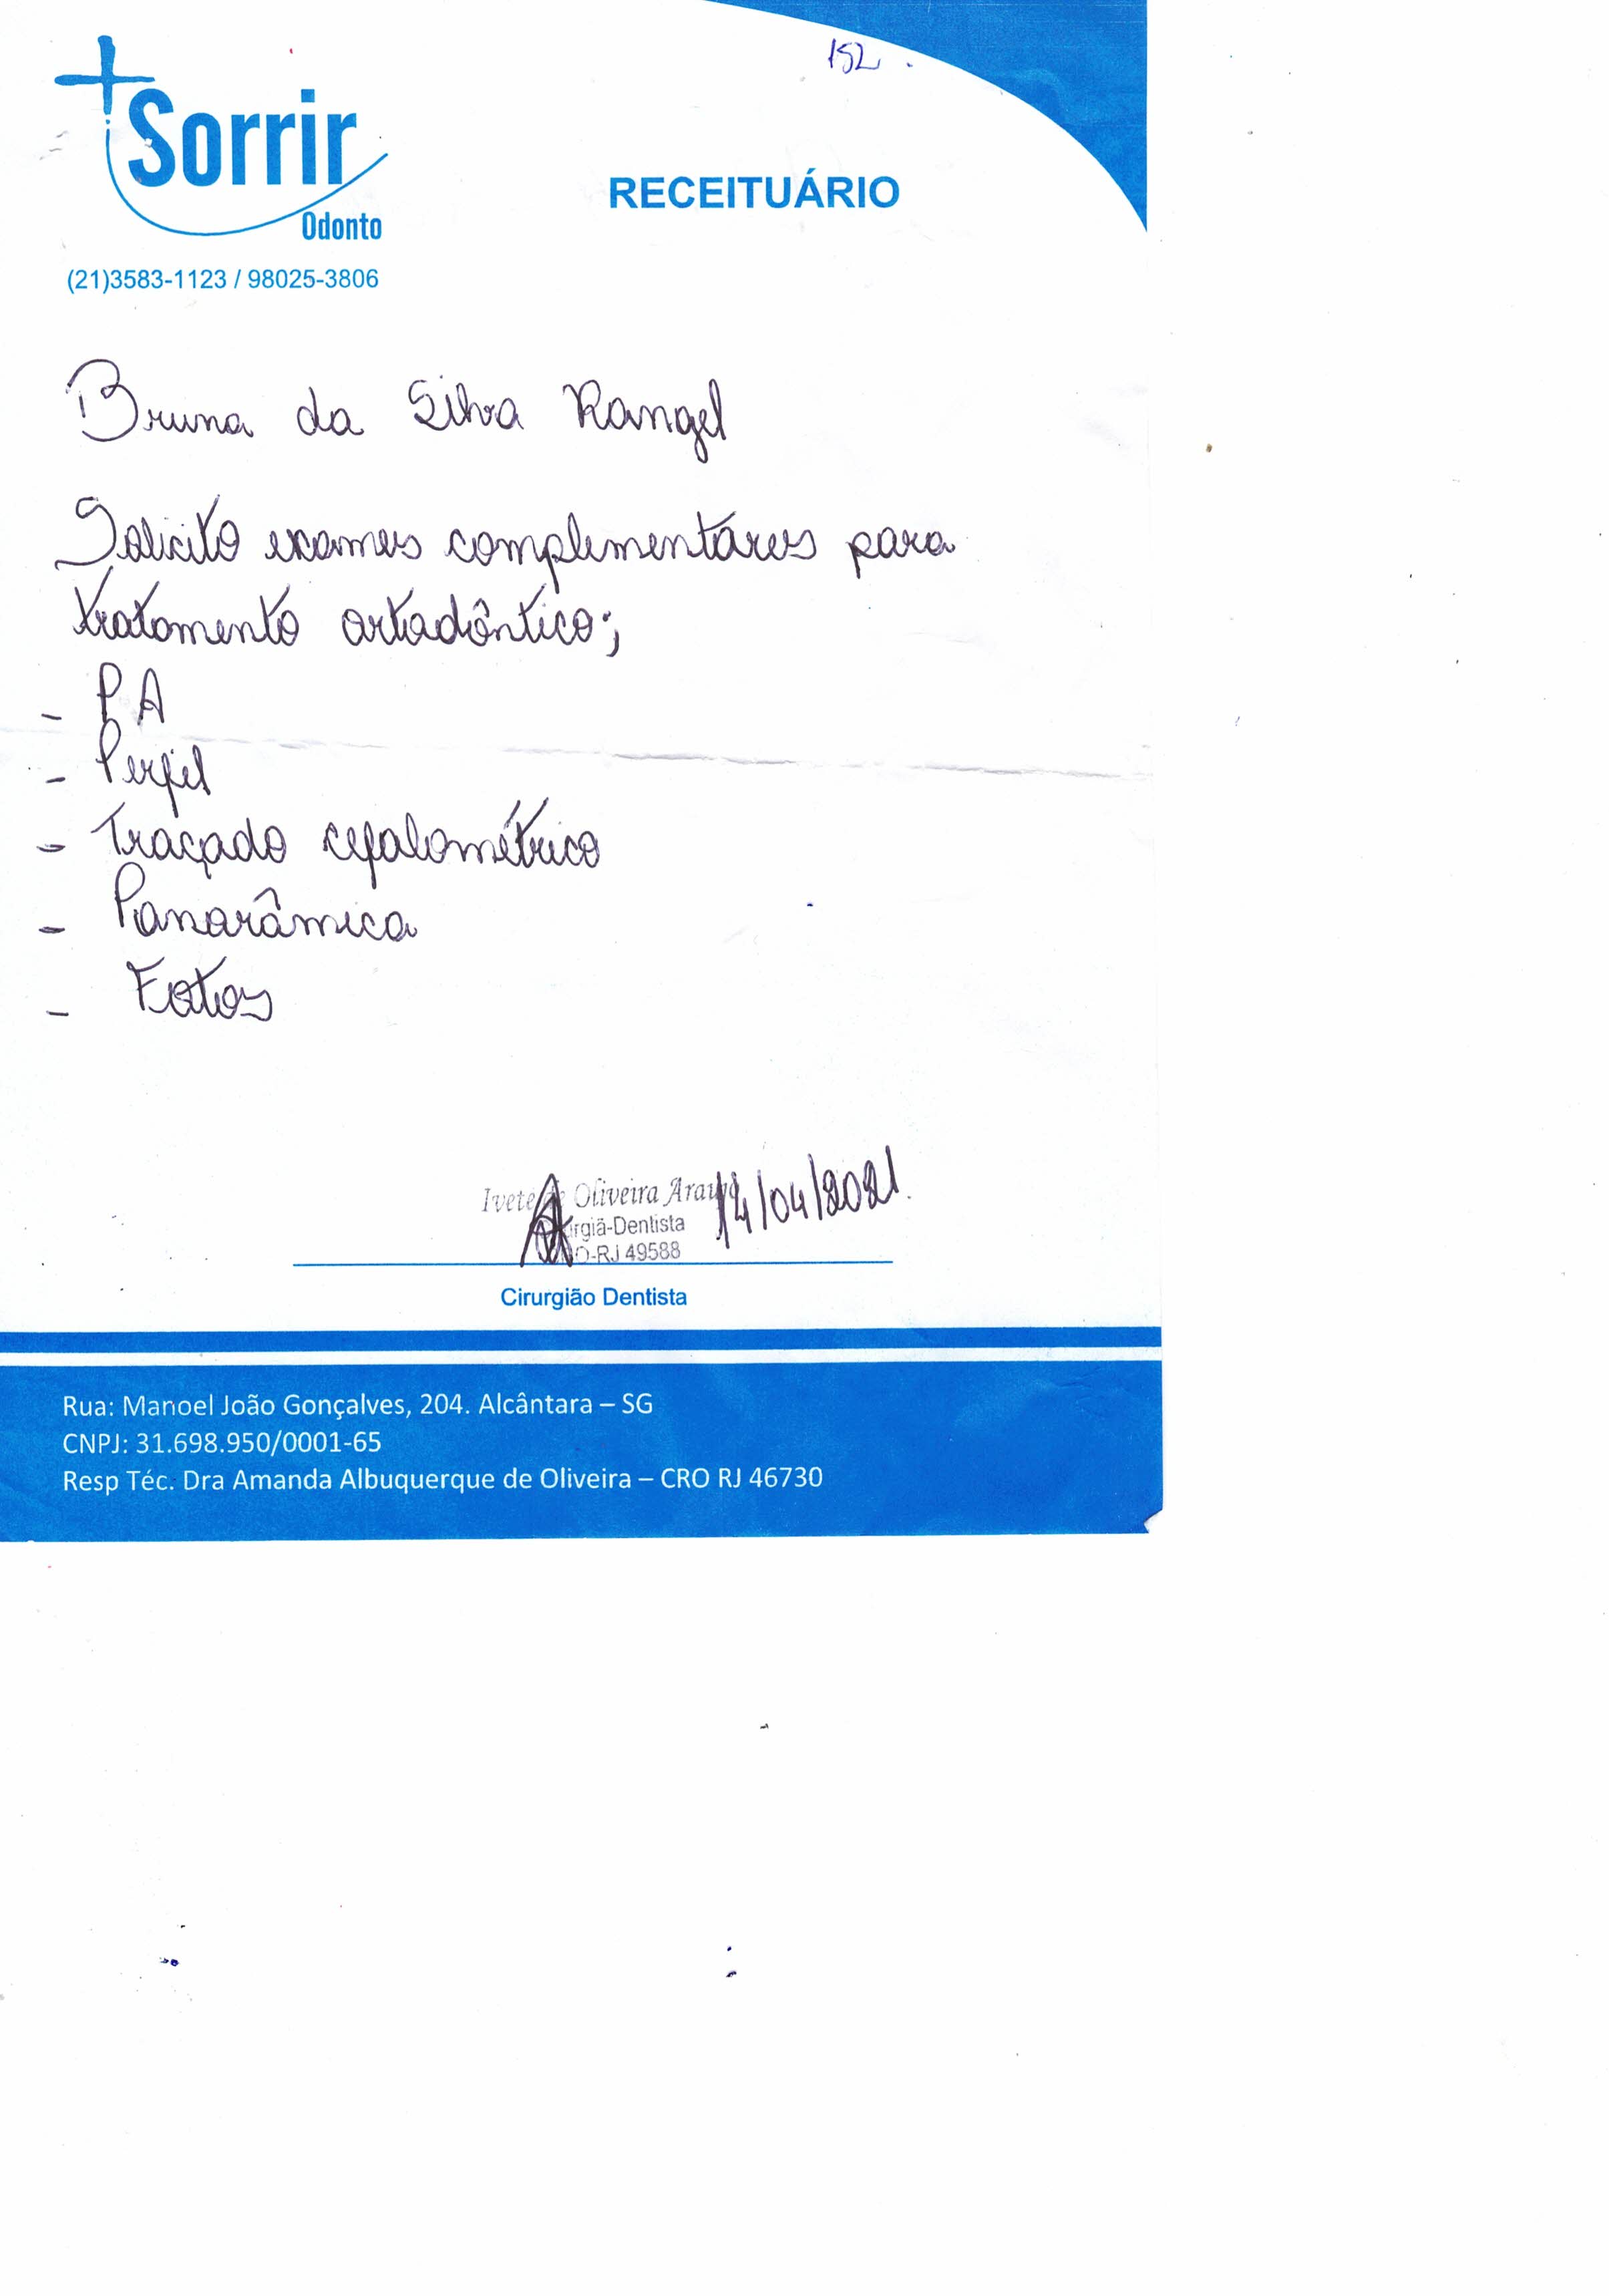 152
Sorrir
Odonto
RECEITUÁRIO
(21)3583-1123 / 98025-3806
Bruna da Silva Rangel
Solicito exames complementares para
tratamento ortodôntico;
- PA
- Perfil
- Traçado cefalométrico
- Panorâmica
- Fotos
Ivete Oliveira Araujo 14/04/2021
rgiã-Dentista
O-RJ 49588
Cirurgião Dentista
Rua: Manoel João Gonçalves, 204. Alcântara – SG
CNPJ: 31.698.950/0001-65
Resp Téc. Dra Amanda Albuquerque de Oliveira – CRO RJ 46730